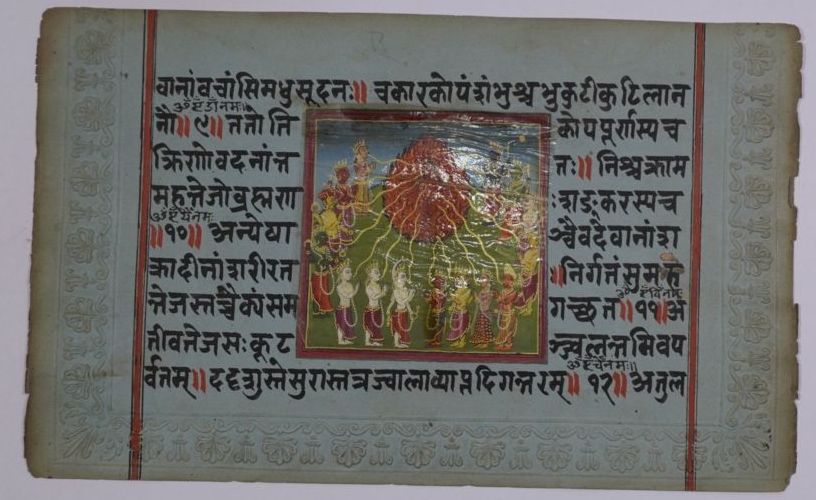 वानांवचांसिमधुसूदनः॥ चकारकोपंशंभुश्चभ्रुकुटीकुटिलान
नमः॥
नौ॥९॥ततोति कोपपूर्णस्यच
क्रिणोवदनात्त तः॥ निश्चक्राम
महत्तेजोब्रह्मण ःशङ्करस्यच
नमः
॥१०॥ अन्येषा ञ्चैवदेवानांश
क्रादीनांशरीरत ॥निर्गतंसुमहे
नमः
त्तेजस्तच्चैक्यंसम गच्छत॥११॥अ
तीवतेजसःकूट ञ्ज्वलन्तमिवप
नमः॥
र्वतम्॥ददृशुस्तेसुरास्तत्रज्वालाव्याप्तदिगन्तरम्॥१२॥अतुल